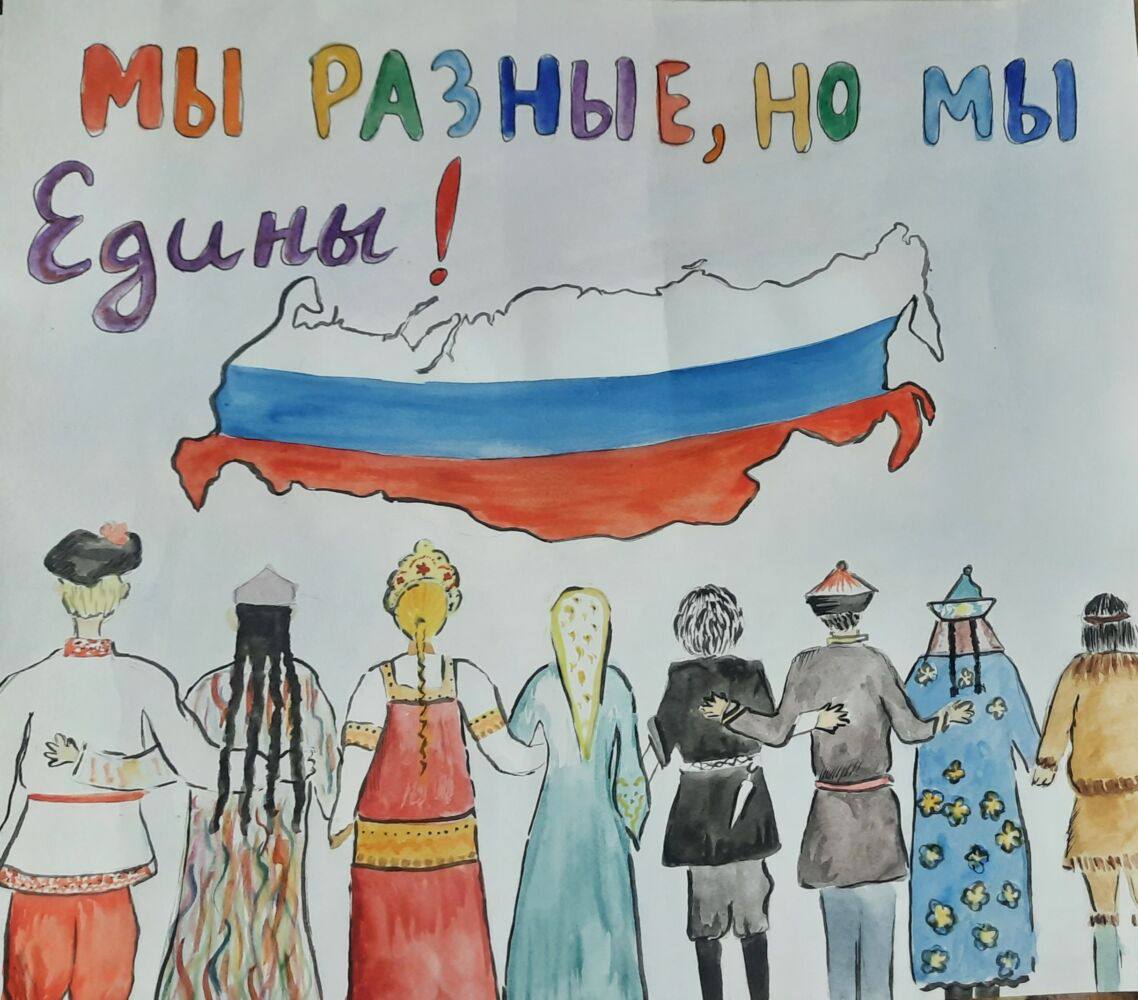 МЫ РАЗНЫЕ, НО МЫ
Едины!